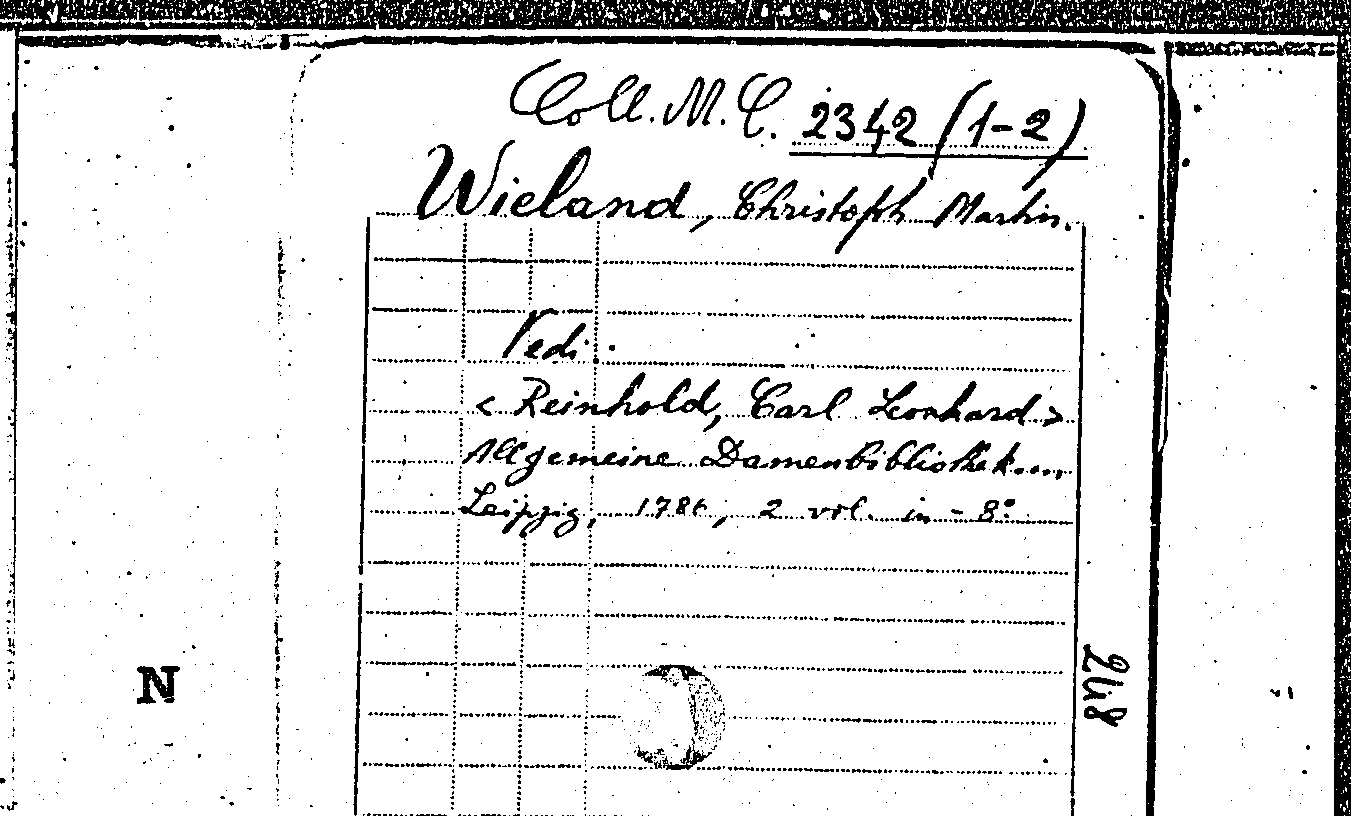 Coll. M. C. 2342 (1-2)
Wieland, Christoph Martin.
Vedi:
< Reinhold, Carl Leonhard >
Allgemeine Damenbibliothek....
Leipzig, 1786, 2 vol. in - 8°.
N
248